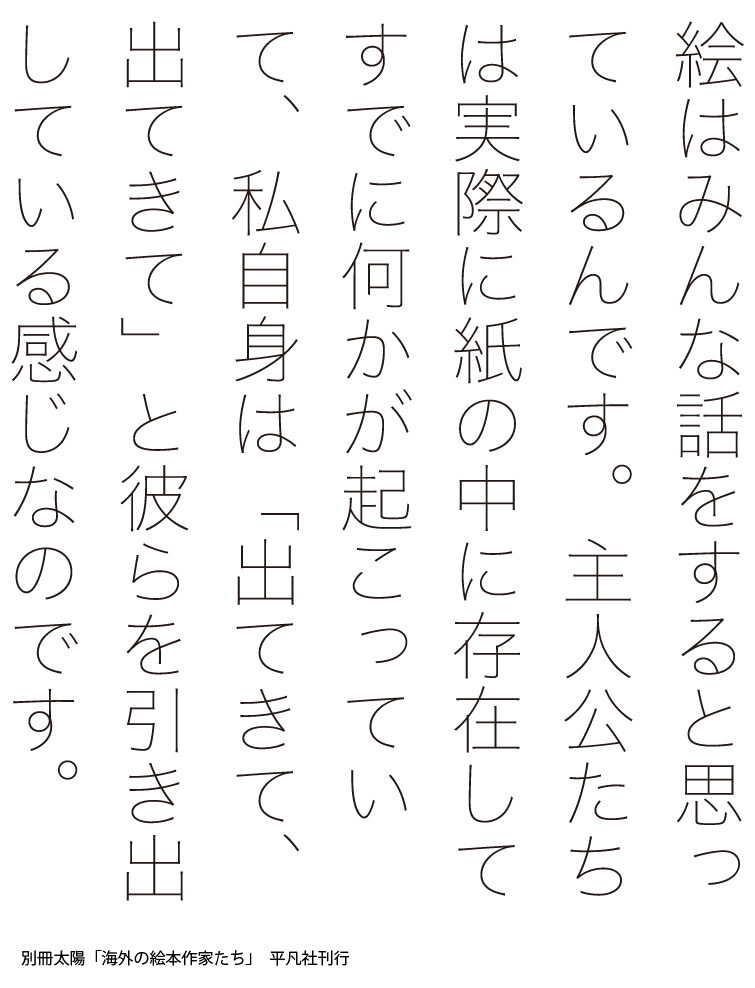 絵はみんな話をすると思っ
ているんです。 主人公たち
は実際に紙の中に存在して
すでに何かが起こってい
て、私自身は「出てきて、
出てきて」と彼らを引き出
している感じなのです。
別冊太陽「海外の絵本作家たち」 平凡社刊行